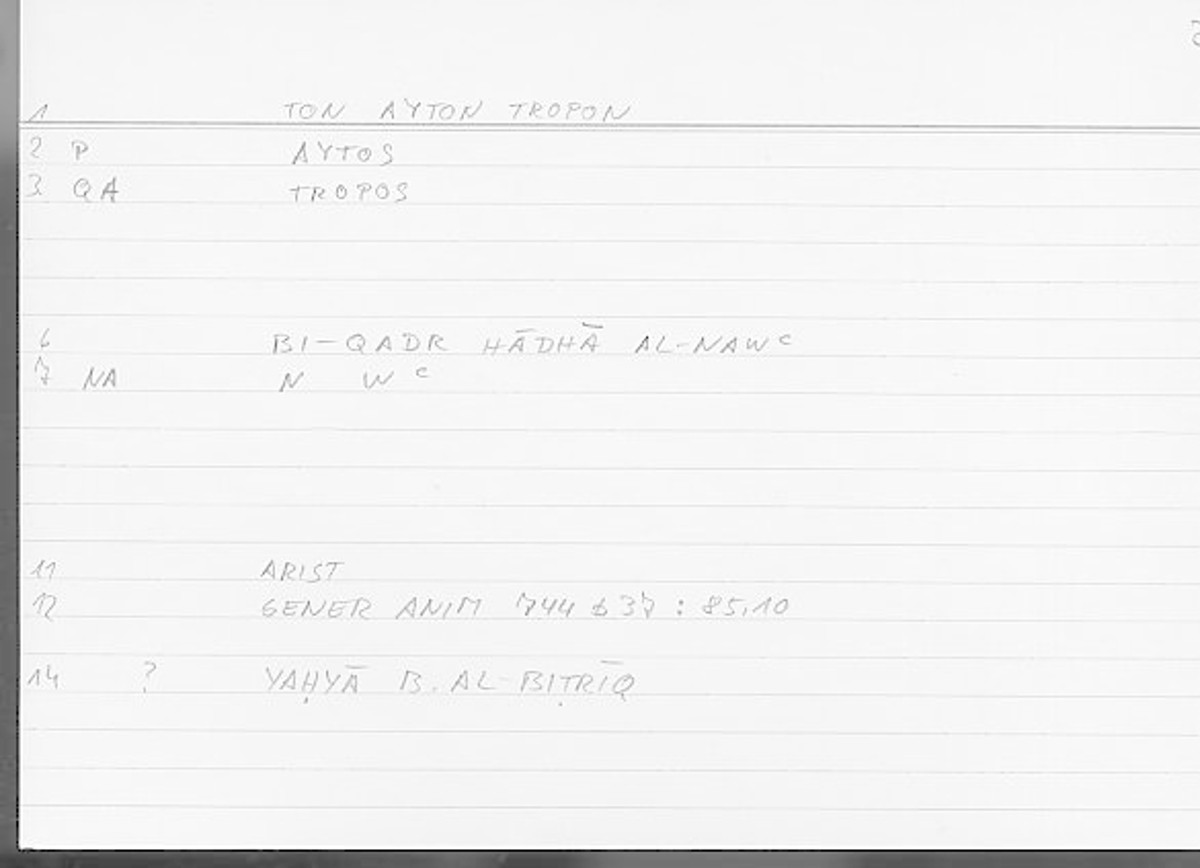 1 TON AYTON TROPON
2 P AYTOS
3 QA TROPOS
6 BI-QADR HĀDHĀ AL-NAWᶜ
7 NA N W ᶜ
11 ARIST
12 GENER ANIM 744 b 37 : 85,10
14 ? YAḤYĀ B. AL-BIṬRĪQ